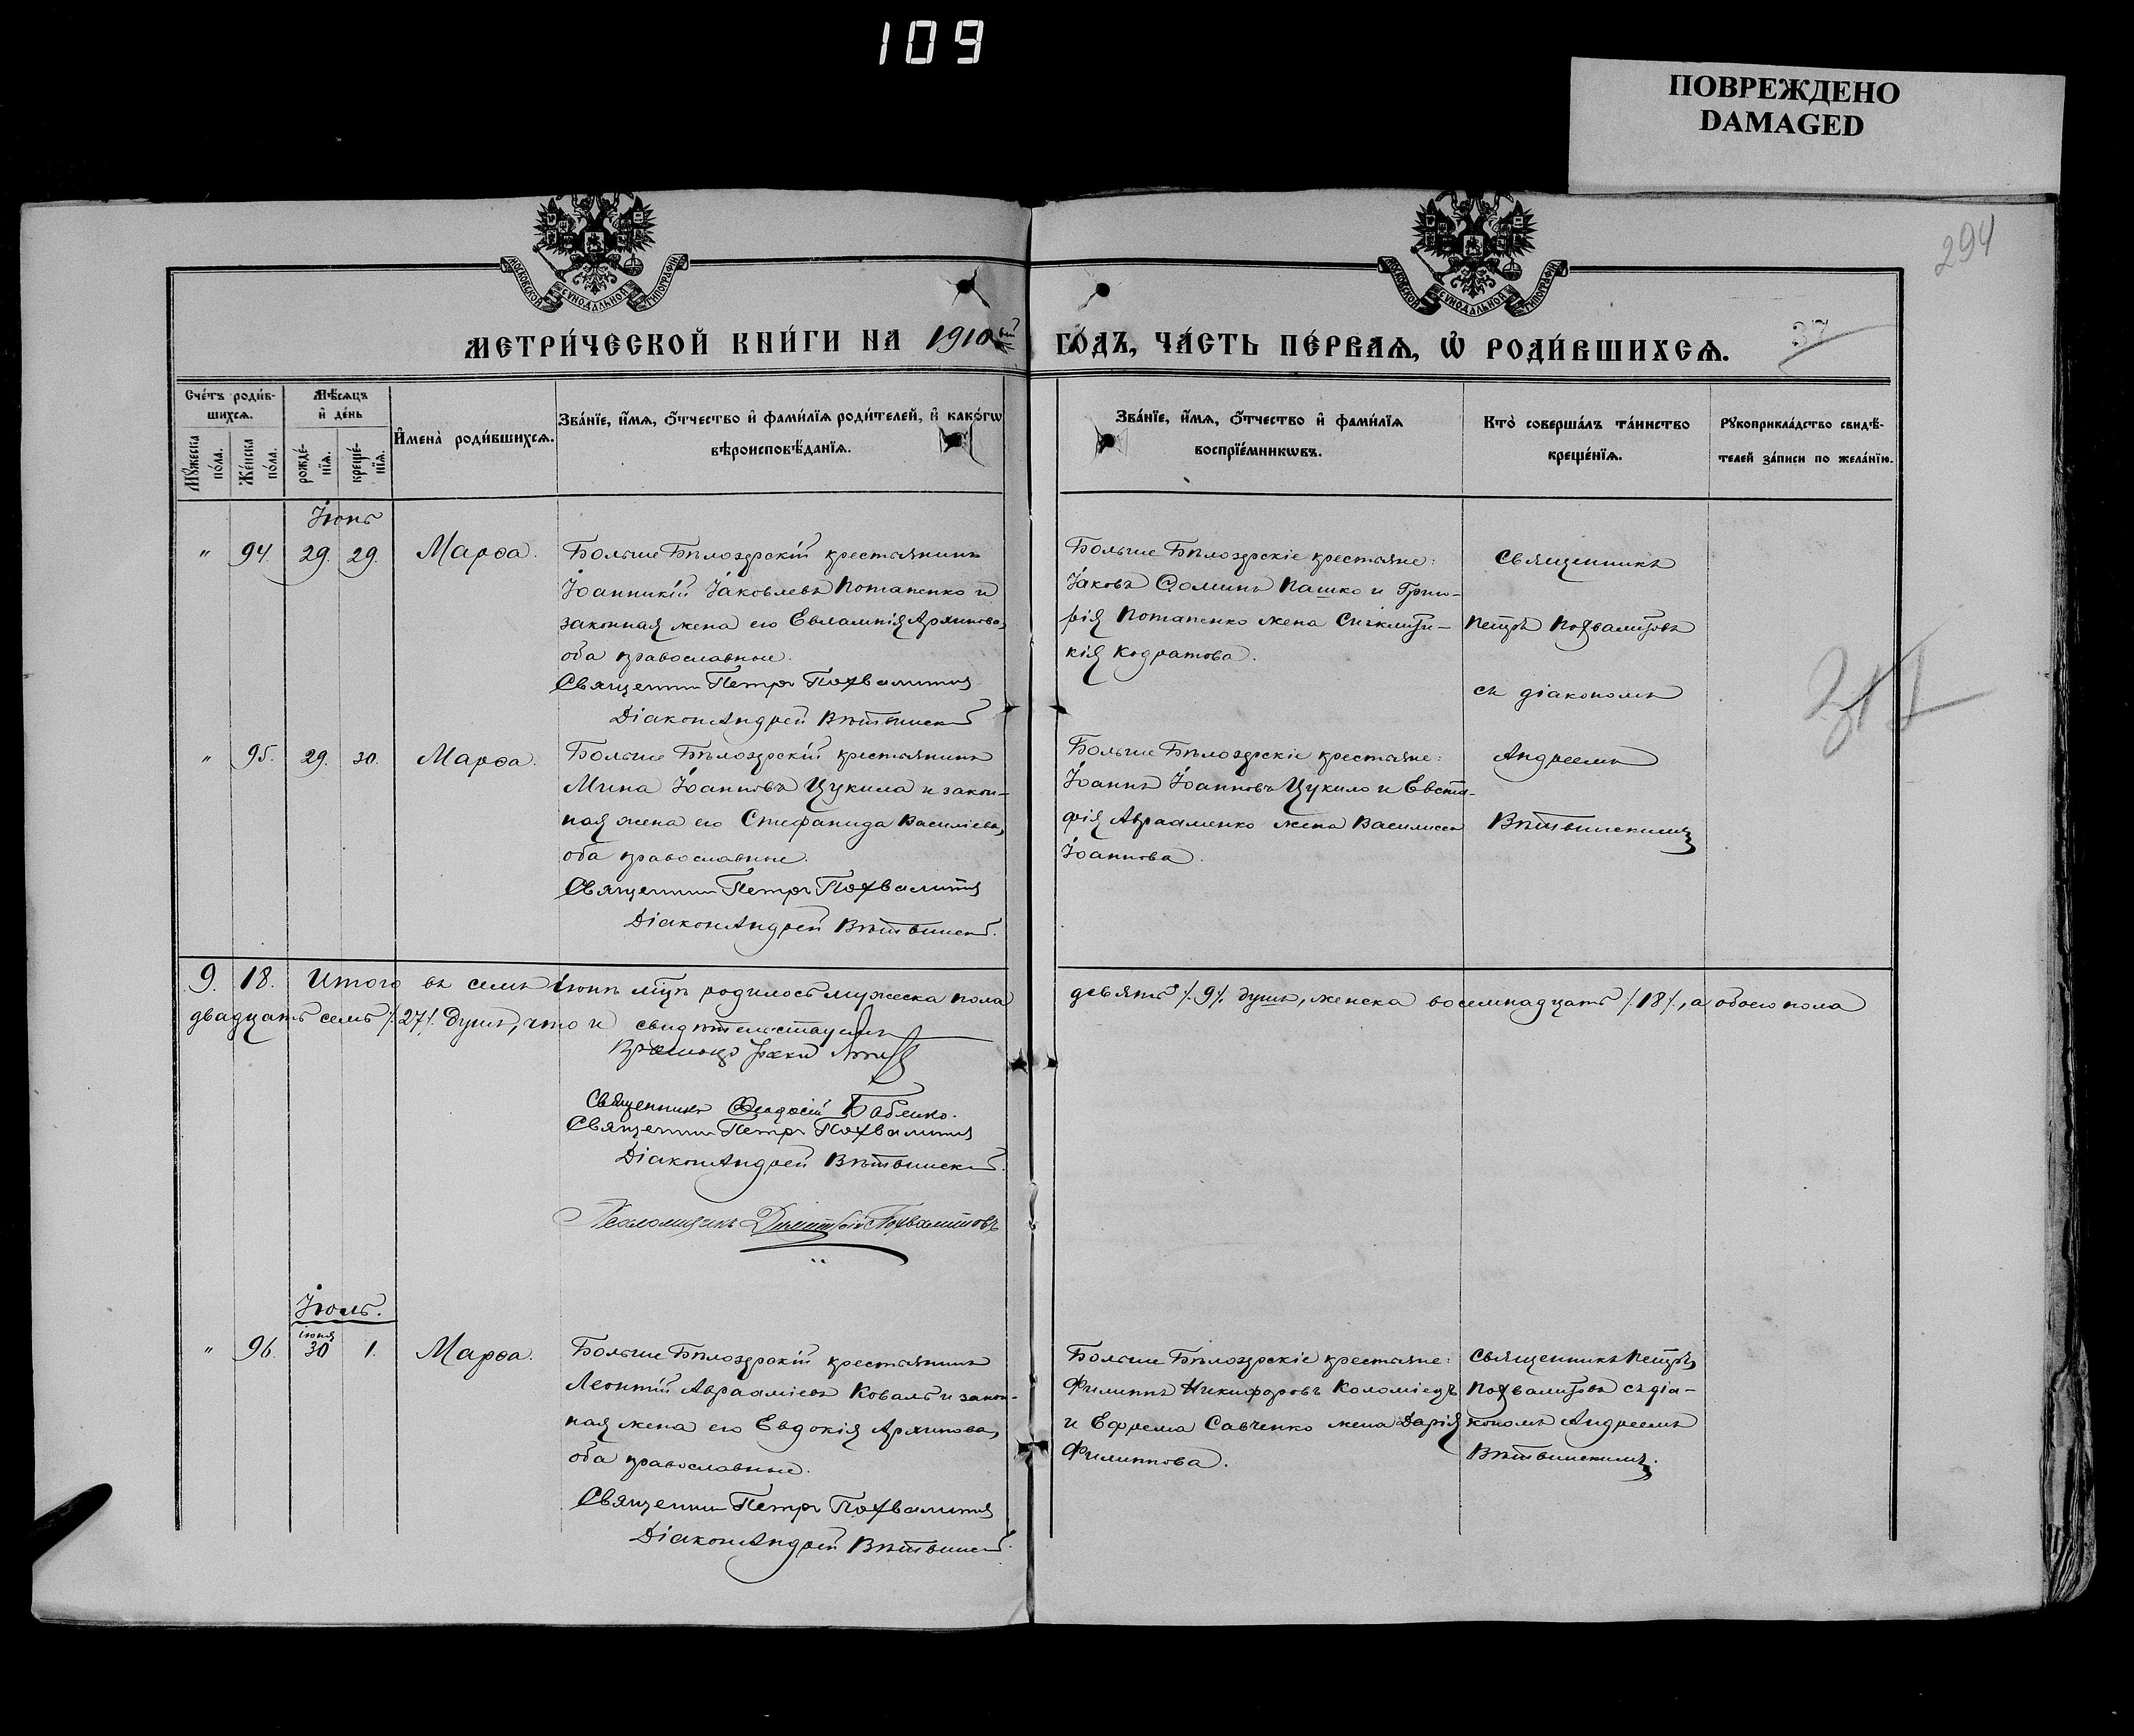 109
ПОВРЕЖДЕНО
DAMAGED
294
МОСКОВСКОЙ СѴНОДАЛЬНОЙ ТИПОГРАФІИ
МОСКОВСКОЙ СѴНОДАЛЬНОЙ ТИПОГРАФІИ
МЕТРИ́ЧЕСКОЙ КНИ́ГИ НА 1910ый ГО́ДЪ, ЧА́СТЬ ПЕ́РВАѦ, Ѡ҆ РОДИ́ВШИХСѦ.
37
Сче́тъ роди́в-
шихсѧ.
Мѣ́сѧцъ
и҆ де́нь
Мꙋ́жеска по́ла.
Же́нска по́ла.
рожде́-нїѧ.
креще́-нїѧ.
И҆мена̀ роди́вшихсѧ.
Зва́нїе, и҆́мѧ, ѻ҆́тчество и҆ фами́лїѧ роди́телей, и҆ како́гѡ
вѣроисповѣ́данїѧ.
Зва́нїе, и҆́мѧ, ѻ҆́тчество и҆ фами́лїѧ
воспрїе́мникѡвъ.
Кто̀ соверша́лъ та́инство
креще́нїѧ.
Рꙋкоприкла́дство свидѣ́-
телей за́писи по жела́нїю.
Іюнь
" 94. 29. 29. Марѳа.
Больше Бѣлозерскій крестьянинъ
Іоанникій Іаковлевъ Потапенко и
законная жена его Евлампія Архипова,
оба православные.
Священник Петръ Похвалитов
Діаконъ Андрей Вѣтвинскій
Больше Бѣлозерскіе крестьяне:
Іаковъ Ѳоминъ Пашко и Григо-
рія Потапенко жена Сигклити-
кія Кодратова.
Священникъ
Петръ Похвалитовъ
съ діакономъ
Андреемъ
Вѣтвинскимъ
" 95. 29. 30. Марѳа.
Больше Бѣлозерскій крестьянинъ
Мина Іоанновъ Цукила и закон-
ная жена его Стефанида Василіева,
оба православные.
Священник Петръ Похвалитов
Діаконъ Андрей Вѣтвинскій.
Больше Бѣлозерскіе крестьяне:
Іоаннъ Іоанновъ Цукило и Евста-
фія Авраменко жена Василисса
Іоаннова.
9. 18. Итого въ семъ іюнѣ мцѣ родилось мужеска пола девять /9/. душъ, женска восемнадцать /18/, а обоего пола
двадцать семь /27/. душъ, что и свидѣтельствуемъ
Священникъ Ѳеодосій Бабенко.
Священник Петръ Похвалитов
Діаконъ Андрей Вѣтвинскій.
Псаломщикъ Димитрій Похвалитовъ
Іюль.
іюня
" 96. 30 1. Марѳа.
Больше Бѣлозерскій крестьянинъ
Леонтій Аврааміевъ Коваль и закон-
ная жена его Евдокія Архипова,
оба православные.
Священник Петръ Похвалитов
Діаконъ Андрей Вѣтвинскій.
Больше Бѣлозерскіе крестьяне:
Филиппъ Никифоровъ Коломіецъ
и Ефрема Савченко жена Дарія
Филиппова.
Священникъ Петръ
Похвалитовъ съ діа-
кономъ Андреемъ
Вѣтвинскимъ.